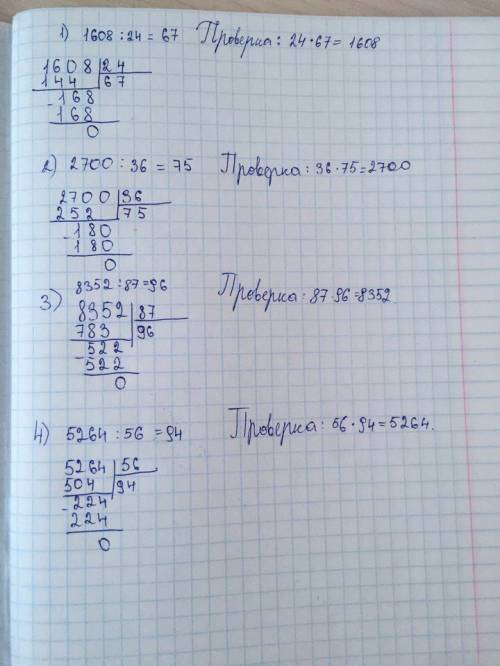 1) 1608 : 24 = 67 Проверка: 24 · 67 = 1608
1608 24
144 67
- 168
168
0
2) 2700 : 36 = 75 Проверка: 36 · 75 = 2700
2700 36
252 75
- 180
180
0
8352 : 87 = 96 Проверка: 87 · 96 = 8352
3) 8352 87
783 96
- 522
522
0
4) 5264 : 56 = 94 Проверка: 56 · 94 = 5264.
5264 56
504 94
- 224
224
0